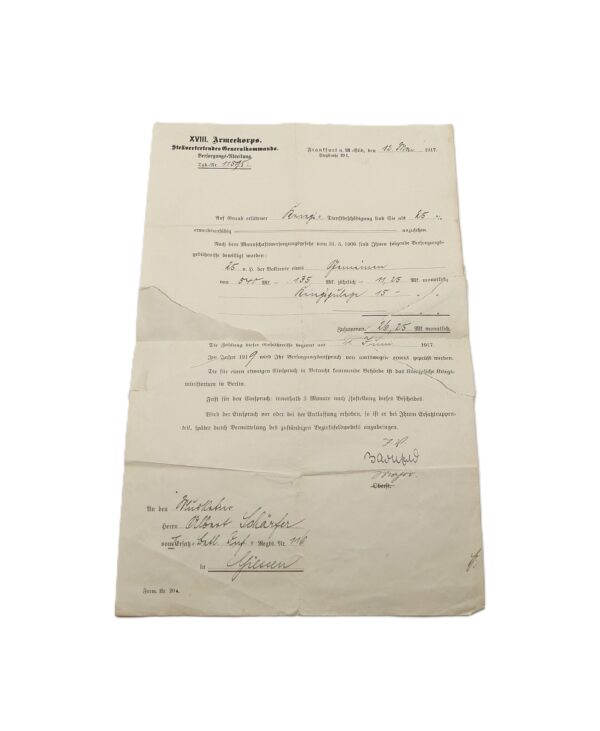 XVIII. Armeekorps.
Stellvertretendes Generalkommando.
Versorgungs-Abteilung.
Tgb.-Nr. 11595.
Frankfurt a. M.-Süd, den 12. Mai 1917.
Auf Grund erlittener Kriegs- Dienstbeschädigung sind Sie als 25 %
erwerbsunfähig anzusehen.
Nach dem Mannschaftsversorgungsgesetz vom 31. 5. 1906 sind Ihnen folgende Versorgungs-
gebührnisse bewilligt worden:
25 v. H. der Vollrente eines Gemeinen
von 540 Mk. = 135 Mk. jährlich = 11,25 Mk. monatlich,
Kriegszulage 15 —
Zusammen 26,25 Mk. monatlich.
Die Zahlung dieser Gebührnisse beginnt am 1. Juni 1917.
Im Jahre 1919 wird Ihr Versorgungsanspruch von amtswegen erneut geprüft werden.
Die für einen etwaigen Einspruch in Betracht kommende Behörde ist das Königliche Kriegs-
ministerium in Berlin.
Frist für den Einspruch: innerhalb 3 Monate nach Zustellung dieses Bescheides.
Wird der Einspruch vor oder bei der Entlassung erhoben, so ist er bei Ihrem Ersatztruppen-
teil, später durch Vermittelung des zuständigen Bezirksfeldwebels anzubringen.
Major
Oberst.
An den Musketier
Herrn Albert Schärfer
vom I. Ersatz- Batl. Inf. Regt. Nr. 116
in Giessen
Form. Nr. 20a.